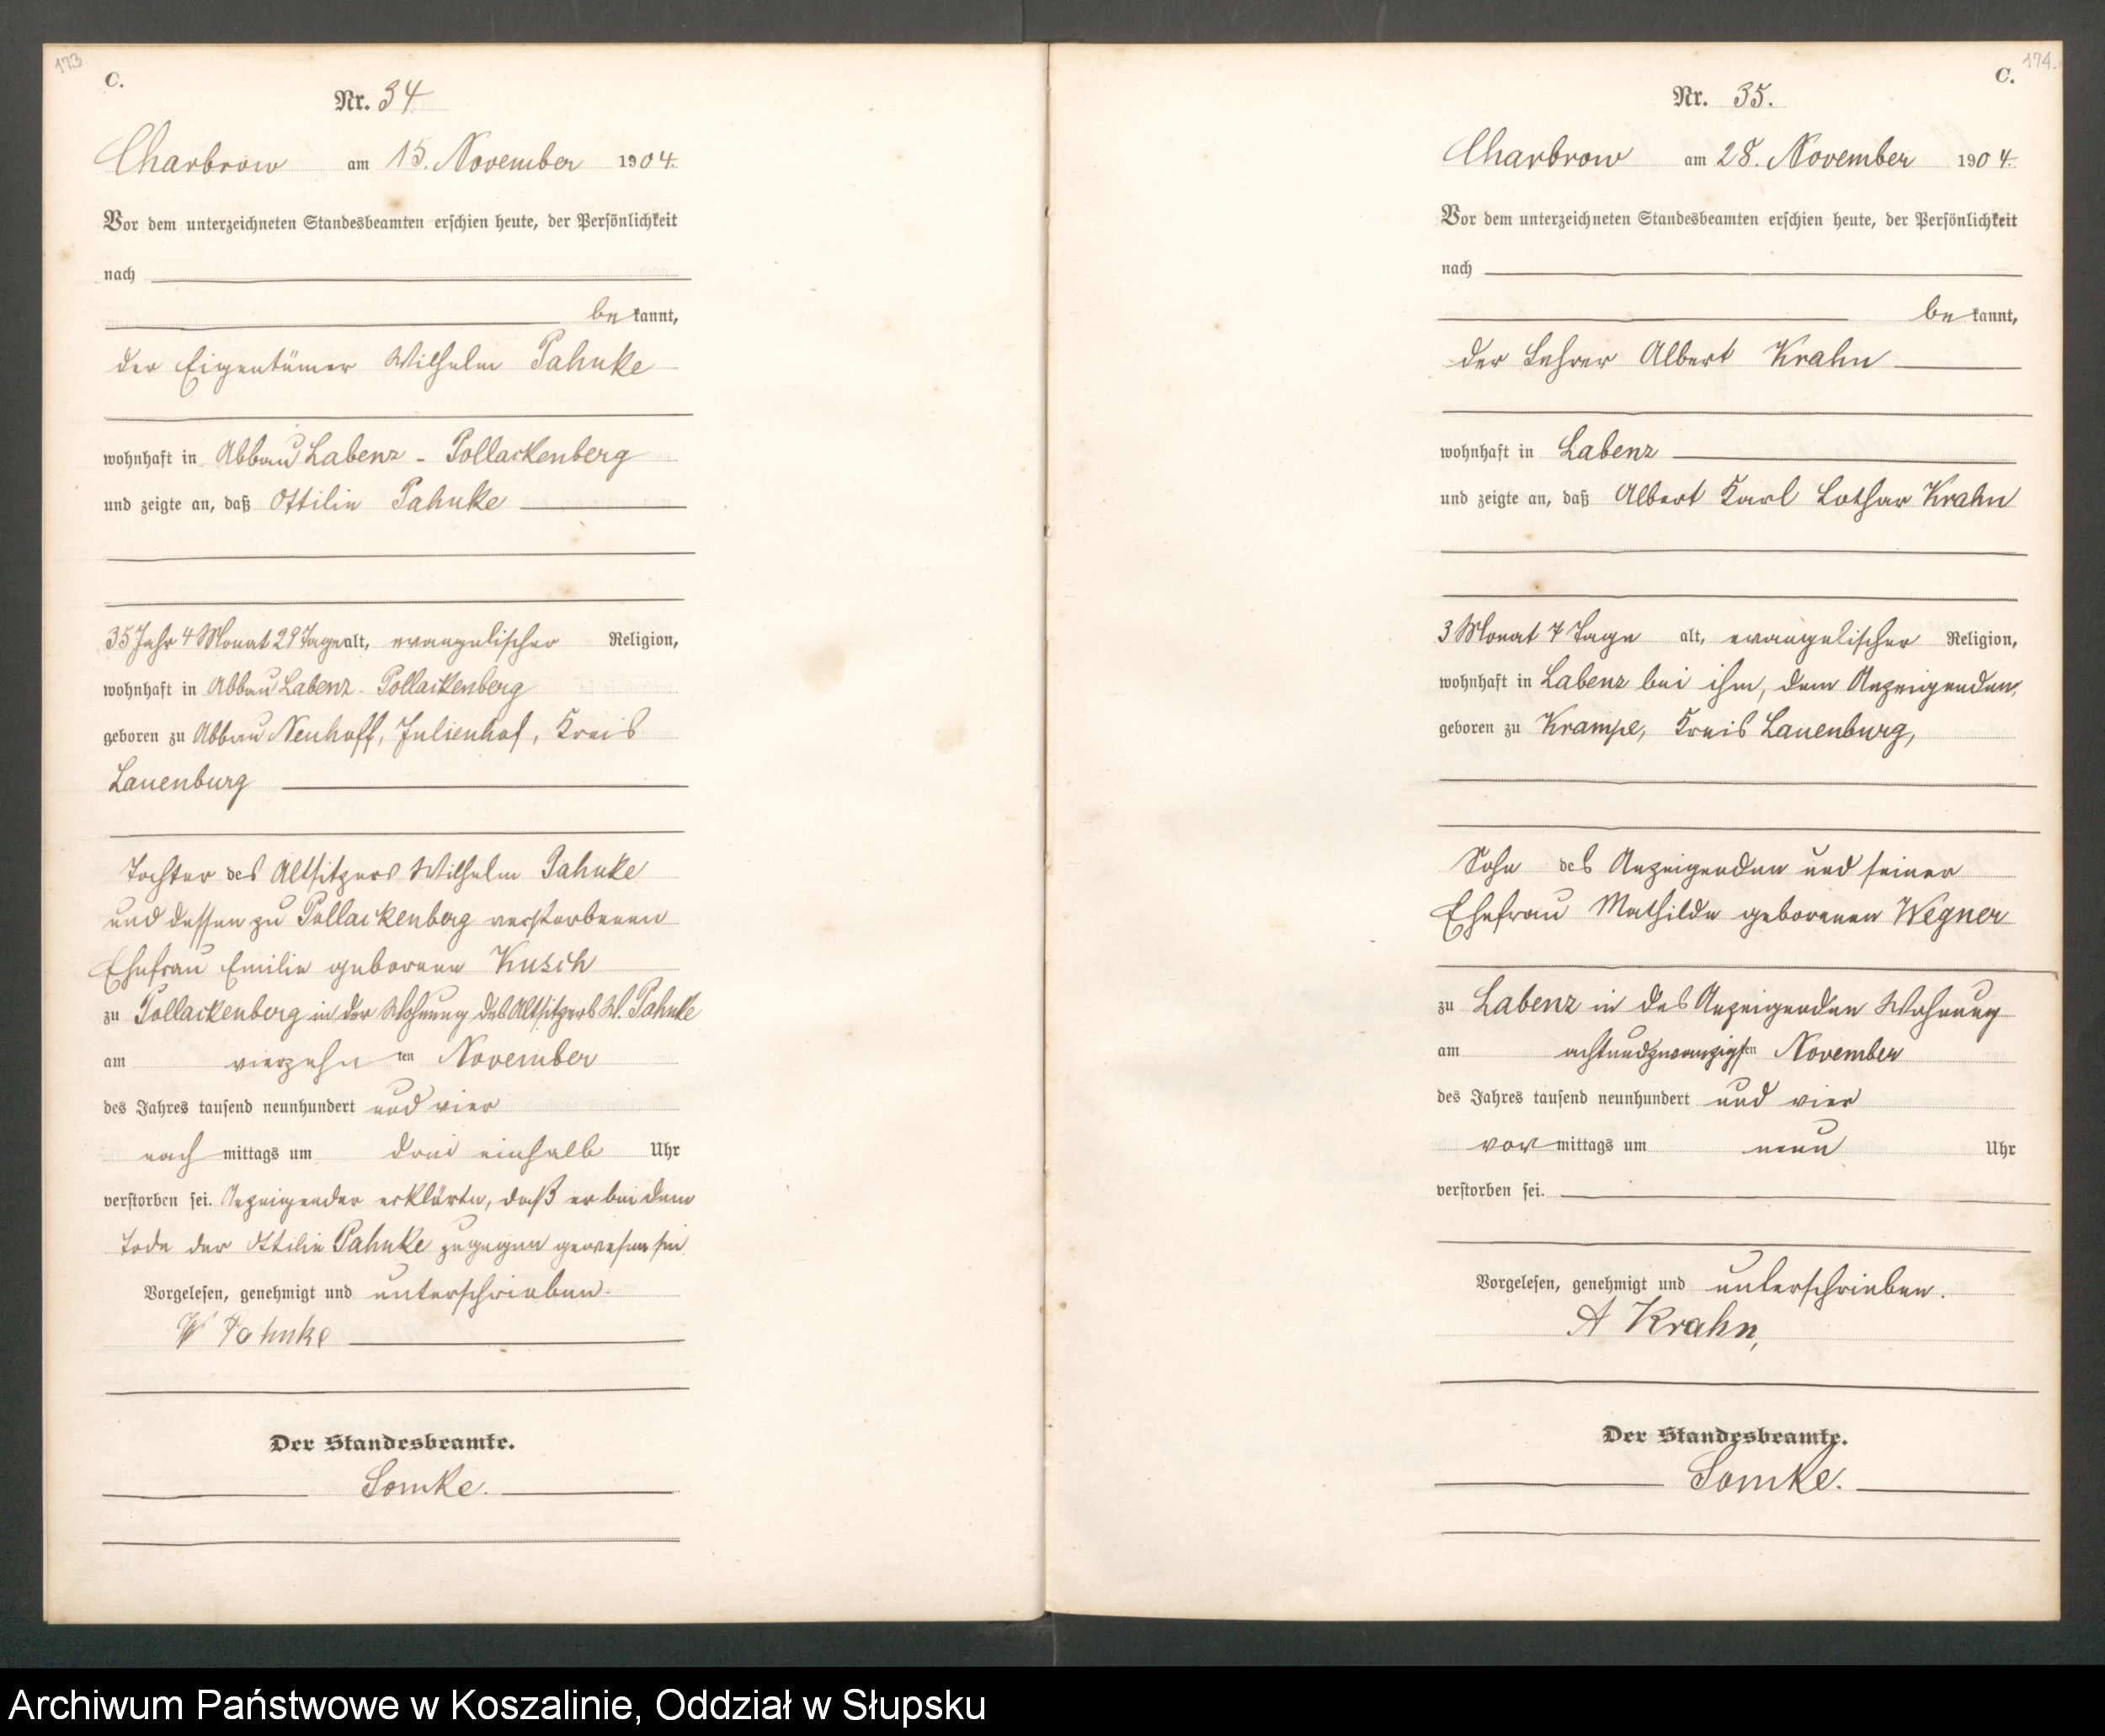 173
C.
Nr. 34
Charbrow am 15. November 1904.
Vor dem unterzeichneten Standesbeamten erschien heute, der Persönlichkeit
nach
be kannt,
der Eigentümer Wilhelm Pahnke
wohnhaft in Abbau Labenz - Pollackenberg
und zeigte an, daß Ottilie Pahnke
35 Jahr 4 Monat 29 Tage alt, evangelischer Religion,
wohnhaft in Abbau Labenz - Pollackenberg
geboren zu Abbau Neuhoff, Julienhof, Kreis
Lauenburg
Tochter des Altsitzers Wilhelm Pahnke
und dessen zu Pollackenberg verstorbenen
Ehefrau Emilie geborene Kusch
zu Pollackenberg in der Wohnung des Altsitzers W. Pahnke
am vierzehn ten November
des Jahres tausend neunhundert und vier
nach mittags um drei einhalb Uhr
verstorben sei. Anzeigender erklärte, daß er bei dem
Tode der Ottilie Pahnke zugegen gewesen sei.
Vorgelesen, genehmigt und unterschrieben.
W Pahnke
Der Standesbeamte.
Lomke.
174.
C.
Nr. 35.
Charbrow am 28. November 1904.
Vor dem unterzeichneten Standesbeamten erschien heute, der Persönlichkeit
nach
be kannt,
der Lehrer Albert Krahn
wohnhaft in Labenz
und zeigte an, daß Albert Karl Lothar Krahn
3 Monat 7 Tage alt, evangelischer Religion,
wohnhaft in Labenz bei ihm, dem Anzeigenden,
geboren zu Krampe, Kreis Lauenburg,
Sohn des Anzeigenden und seiner
Ehefrau Mathilde geborenen Wegner
zu Labenz in des Anzeigenden Wohnung
am achtundzwanzigsten November
des Jahres tausend neunhundert und vier
vor mittags um neun Uhr
verstorben sei.
Vorgelesen, genehmigt und unterschrieben.
A Krahn,
Der Standesbeamte.
Lomke.
Archiwum Państwowe w Koszalinie, Oddział w Słupsku